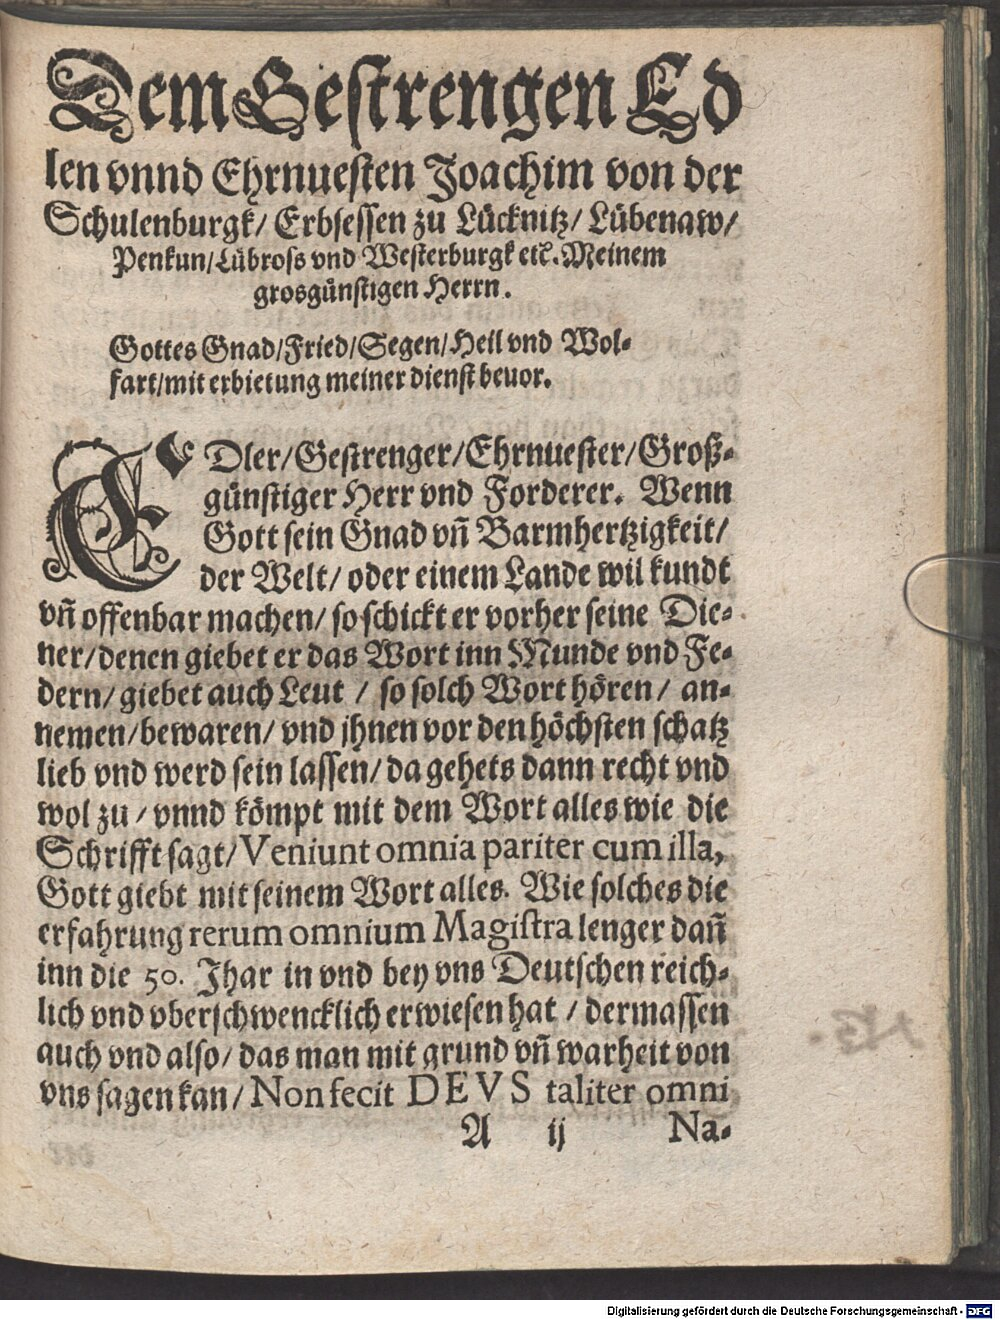 Dem Gestrengen Ed
len vnnd Ehrnuesten Joachim von der
Schulenburgk/ Erbsessen zu Lücknitz/ Lübenaw/
Penkun/ Lübross vnd Westerburgk etc. Meinem
grosgünstigen Herrn.
Gottes Gnad/ Fried/ Segen/ Heil vnd Wol-
fart/ mit erbietung meiner dienst beuor.
EDler/ Gestrenger/ Ehrnuester/ Groß-
günstiger Herr vnd Forderer. Wenn
Gott sein Gnad vn̄ Barmhertzigkeit/
der Welt/ oder einem Lande wil kundt
vn̄ offenbar machen/ so schickt er vorher seine Die-
ner/ denen giebet er das Wort inn Munde vnd Fe-
dern/ giebet auch Leut / so solch Wort hören/ an-
nemen/ bewaren/ vnd jhnen vor den höchsten schatz
lieb vnd werd sein lassen/ da gehets dann recht vnd
wol zu/ vnnd kömpt mit dem Wort alles wie die
Schrifft sagt/ Veniunt omnia pariter cum illa,
Gott giebt mit seinem Wort alles. Wie solches die
erfahrung rerum omnium Magistra lenger dan̄
inn die 50. Jhar in vnd bey vns Deutschen reich-
lich vnd vberschwencklich erwiesen hat / dermassen
auch vnd also/ das man mit grund vn̄ warheit von
vns sagen kan/ Non fecit DEVS taliter omni
A ij Na-
Digitalisierung gefördert durch die Deutsche Forschungsgemeinschaft - DFG